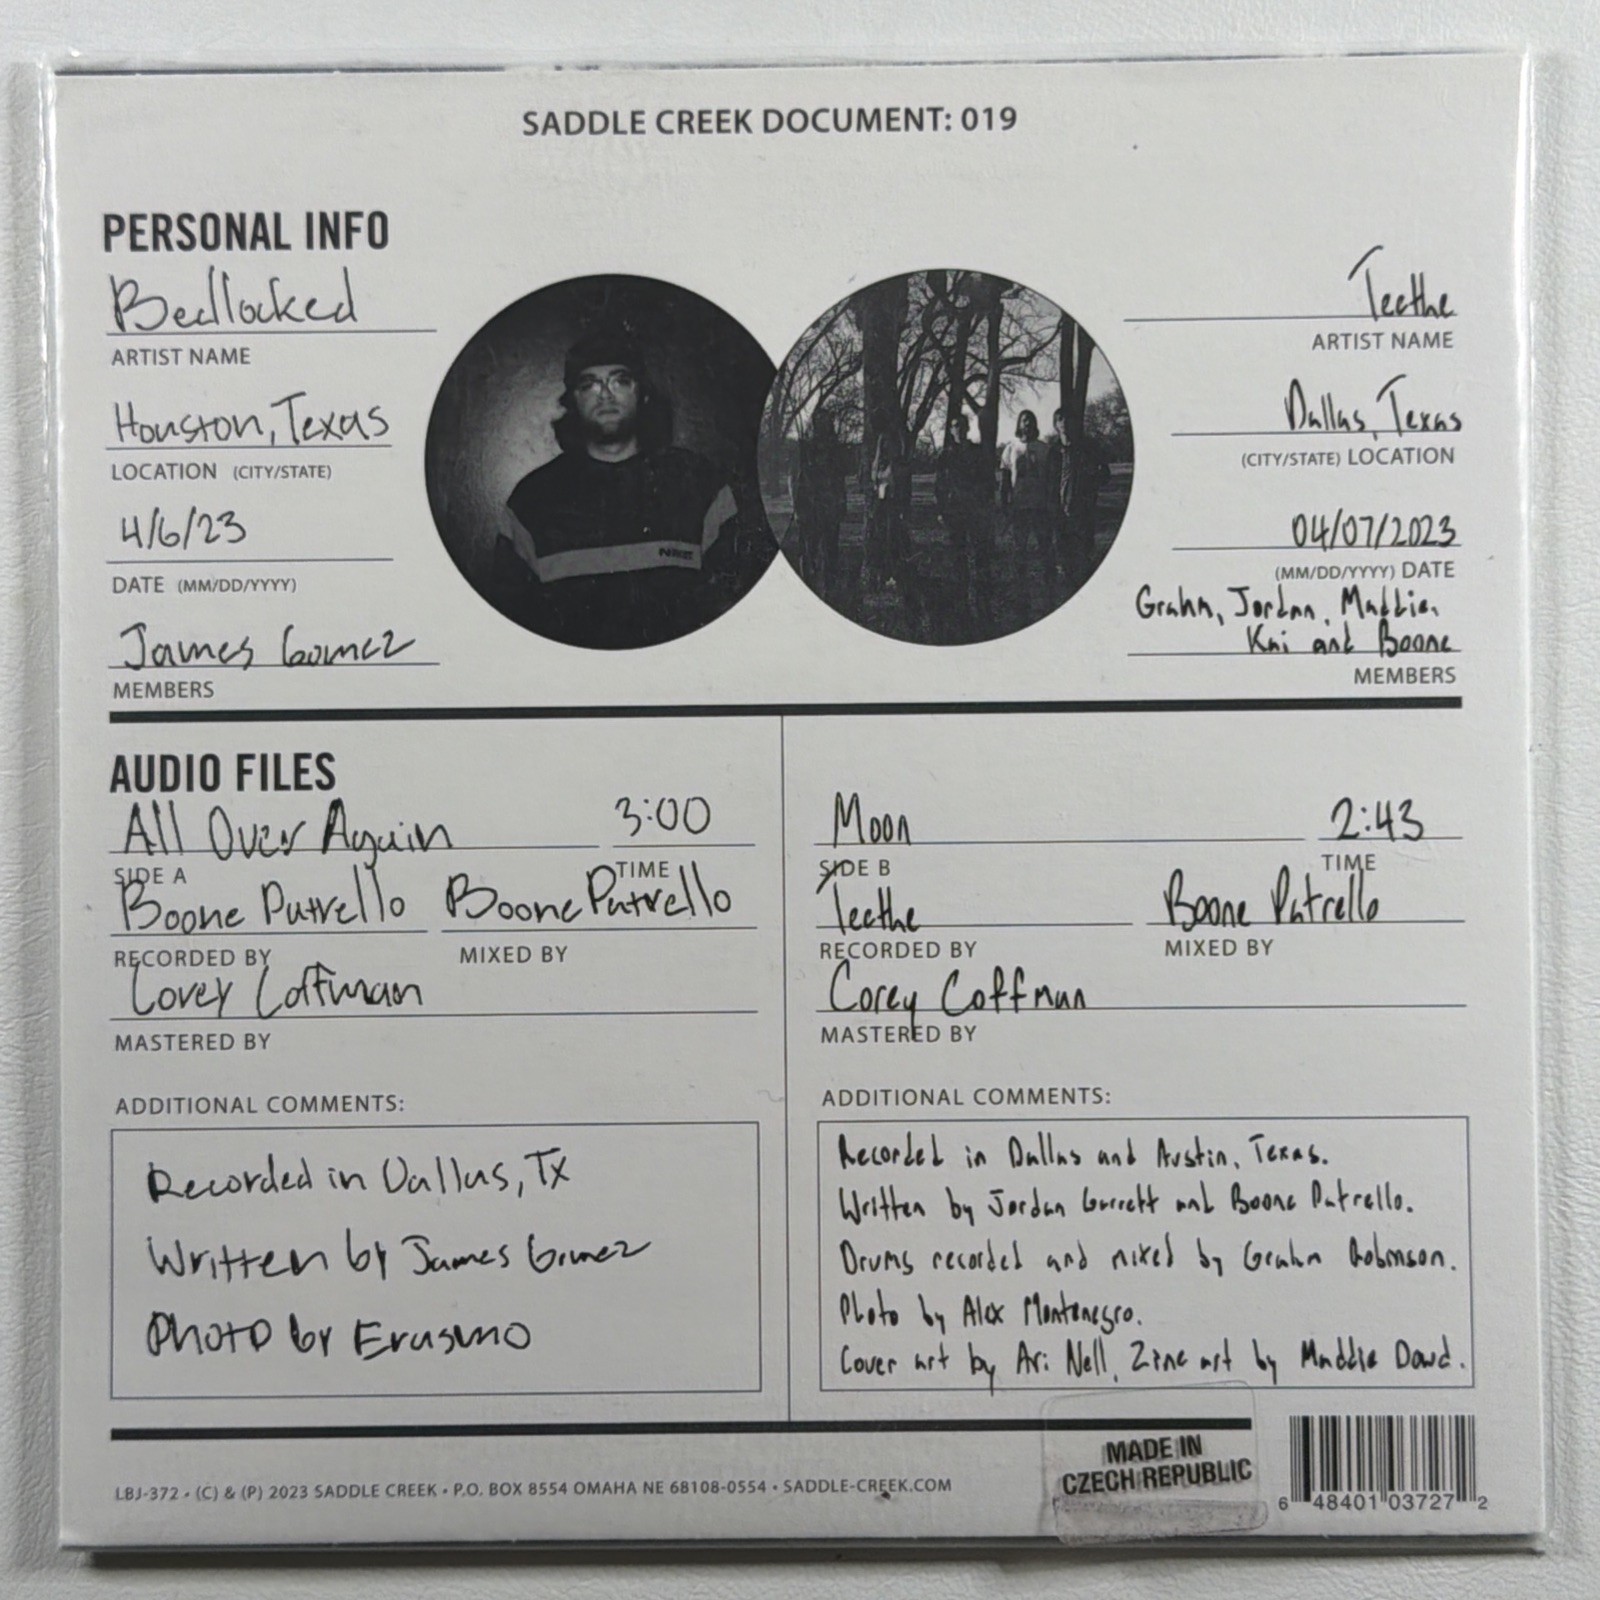 SADDLE CREEK DOCUMENT: 019
PERSONAL INFO
Bedlocked
ARTIST NAME
Houston, Texas
LOCATION (CITY/STATE)
4/6/23
DATE (MM/DD/YYYY)
James Gomez
MEMBERS
NIKE
Teethe
ARTIST NAME
Dallas, Texas
(CITY/STATE) LOCATION
04/07/2023
(MM/DD/YYYY) DATE
Grahm, Jordan, Maddie,
Kai and Boone
MEMBERS
AUDIO FILES
All Over Again 3:00
SIDE A TIME
Boone Patrello Boone Patrello
RECORDED BY MIXED BY
Corey Coffman
MASTERED BY
ADDITIONAL COMMENTS:
Recorded in Dallas, TX
Written by James Gomez
Photo by Erasmo
Moon 2:43
SIDE B TIME
Teethe Boone Patrello
RECORDED BY MIXED BY
Corey Coffman
MASTERED BY
ADDITIONAL COMMENTS:
Recorded in Dallas and Austin, Texas.
Written by Jordan Garrett and Boone Patrello.
Drums recorded and mixed by Grahm Robinson.
Photo by Alex Montenegro.
Cover art by Ari Nell, Zine art by Maddie Dowd.
LBJ-372 • (C) & (P) 2023 SADDLE CREEK • P.O. BOX 8554 OMAHA NE 68108-0554 • SADDLE-CREEK.COM
MADE IN
CZECH REPUBLIC
6 48401 03727 2